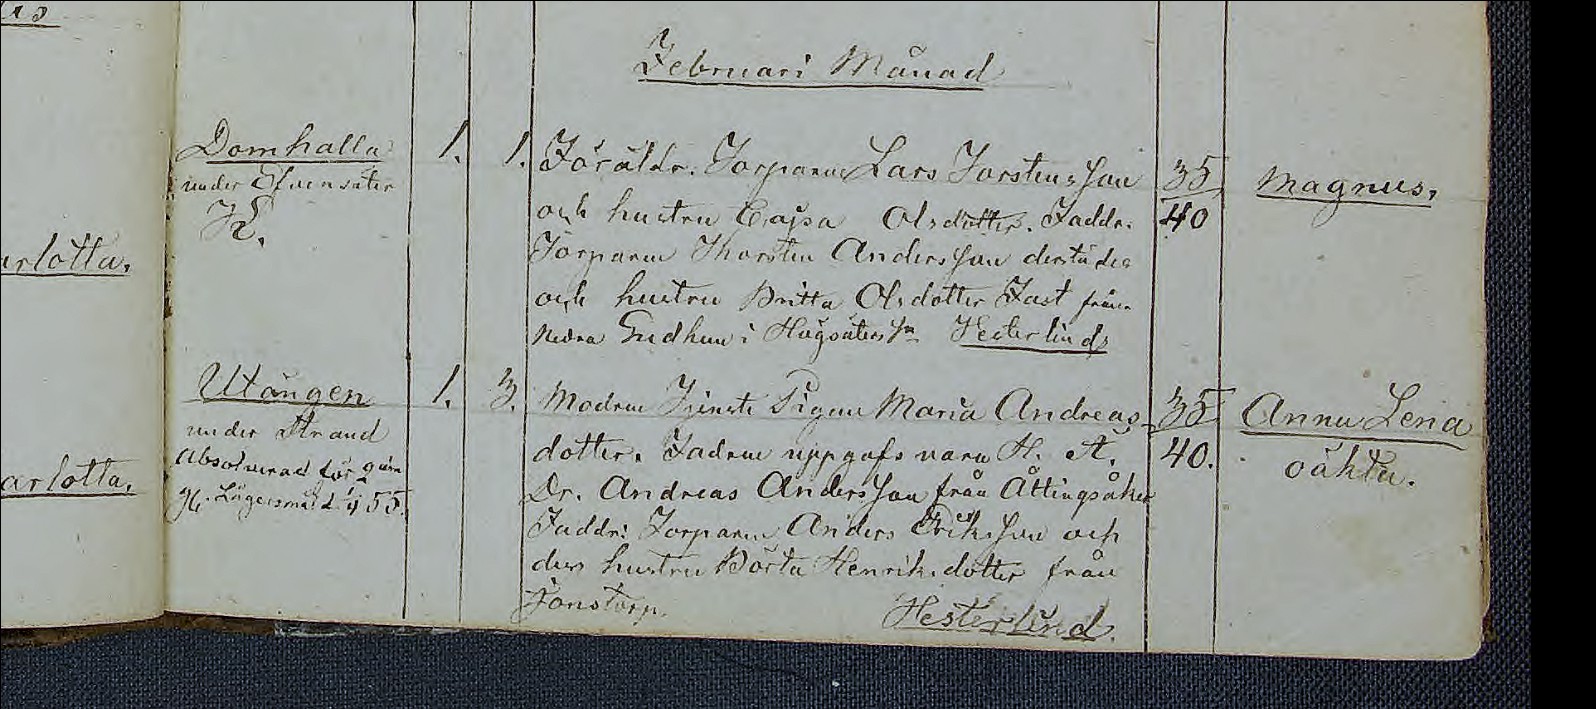 Februari Månad
Domhalla
under Efvensäter
1. 1.
Föräldr. Torparen Lars Torstensson
och hustru Cajsa Olsdotter. Faddr.
Torparen Thorsten Andersson derstädes
och hustru Britta Olsdotter Fast från
Nedra Gudhem i Högsäters Sn Hesterlind
35
40
Magnus.
Utängen
under Strand
Absolverad för
Lägersmål d. 55.
1. 3.
Modren Tjenste Pigan Maria Andreas-
dotter. Fadren uppgafs vara H. A.
Dr. Andreas Andersson från Åttingsåker
Faddr: Torparen Anders Eriksson och
dess hustru Börta Henriksdotter från
Jonstorp. Hesterlind.
35
40.
Anna Lena
oäkta.
arlotta.
arlotta.